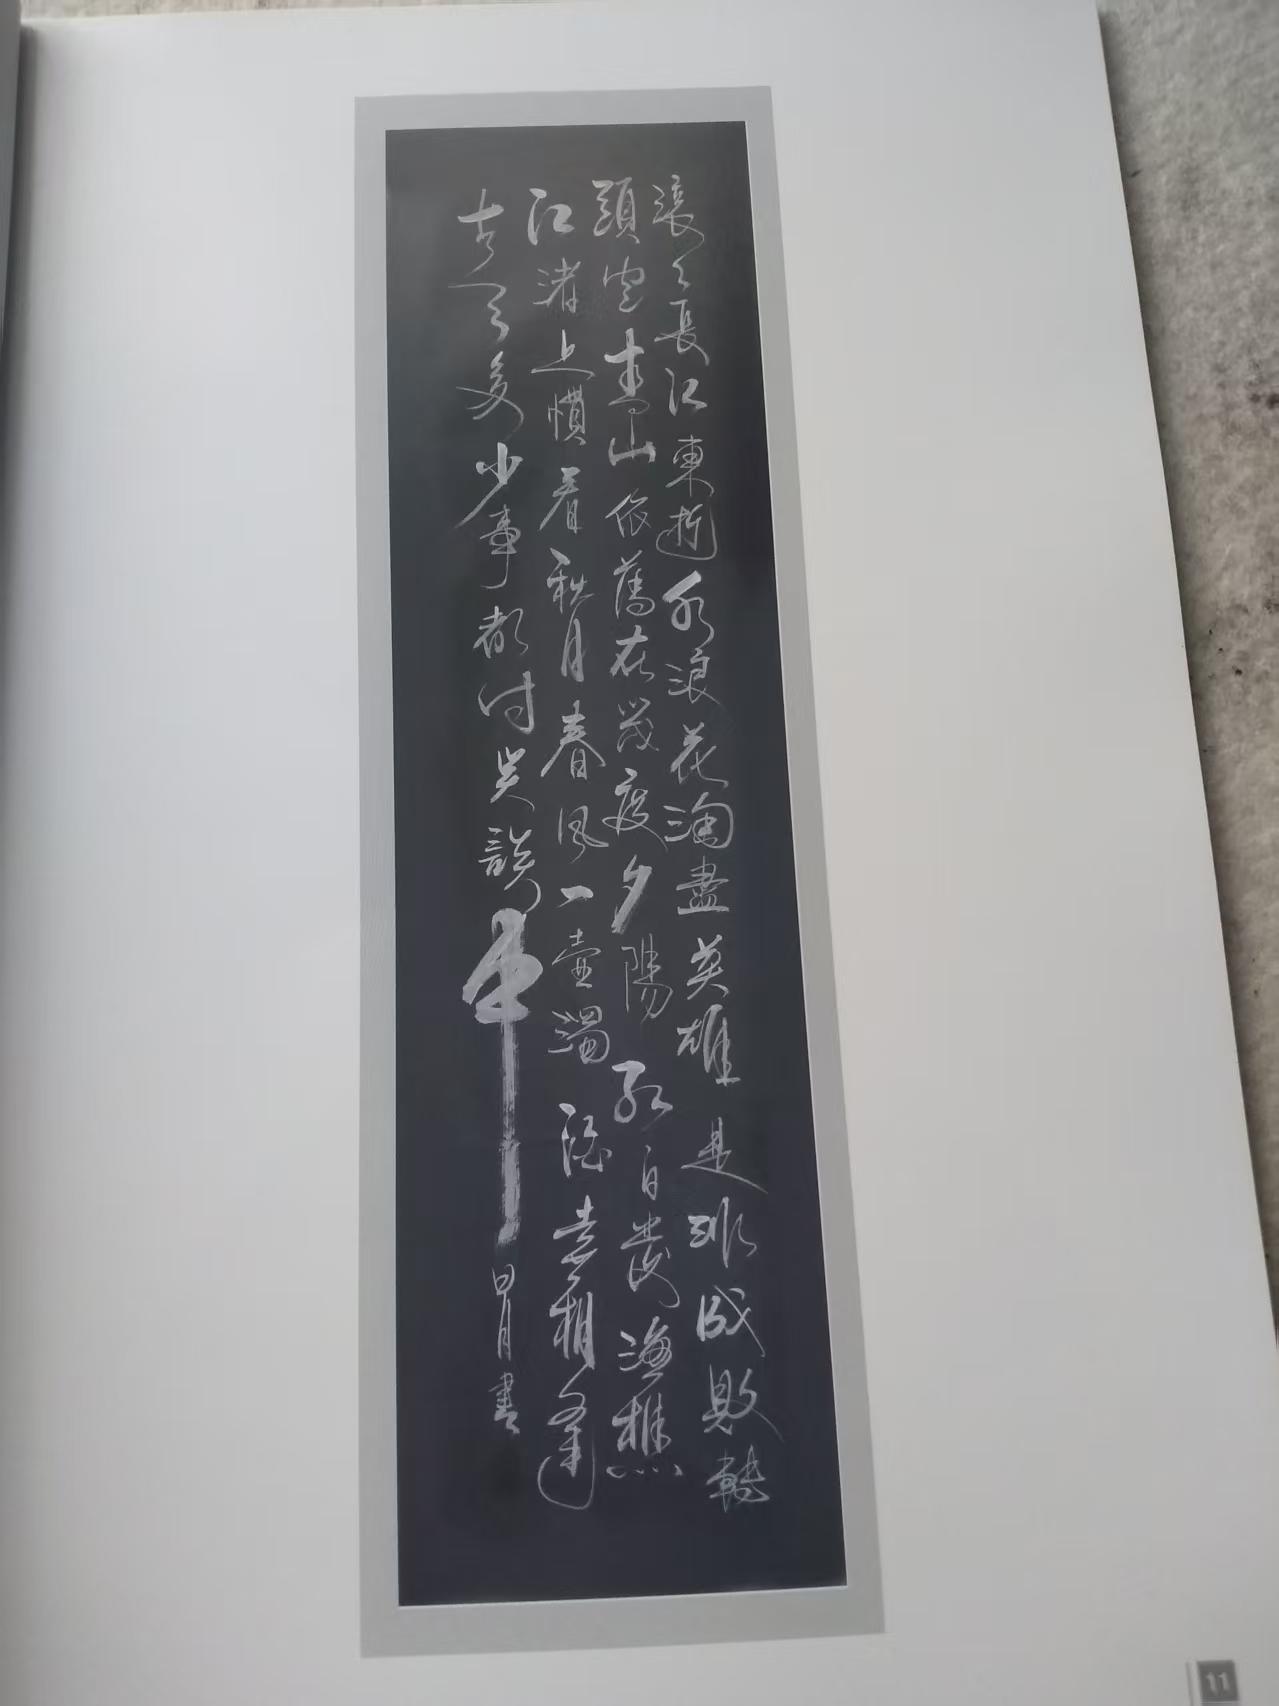 滾々長江東逝水浪花淘盡英雄是非成敗轉
頭空青山依舊在幾度夕陽紅白髮漁樵
江渚上慣看秋月春風一壺濁酒喜相逢
古今多少事都付笑談中 書
11